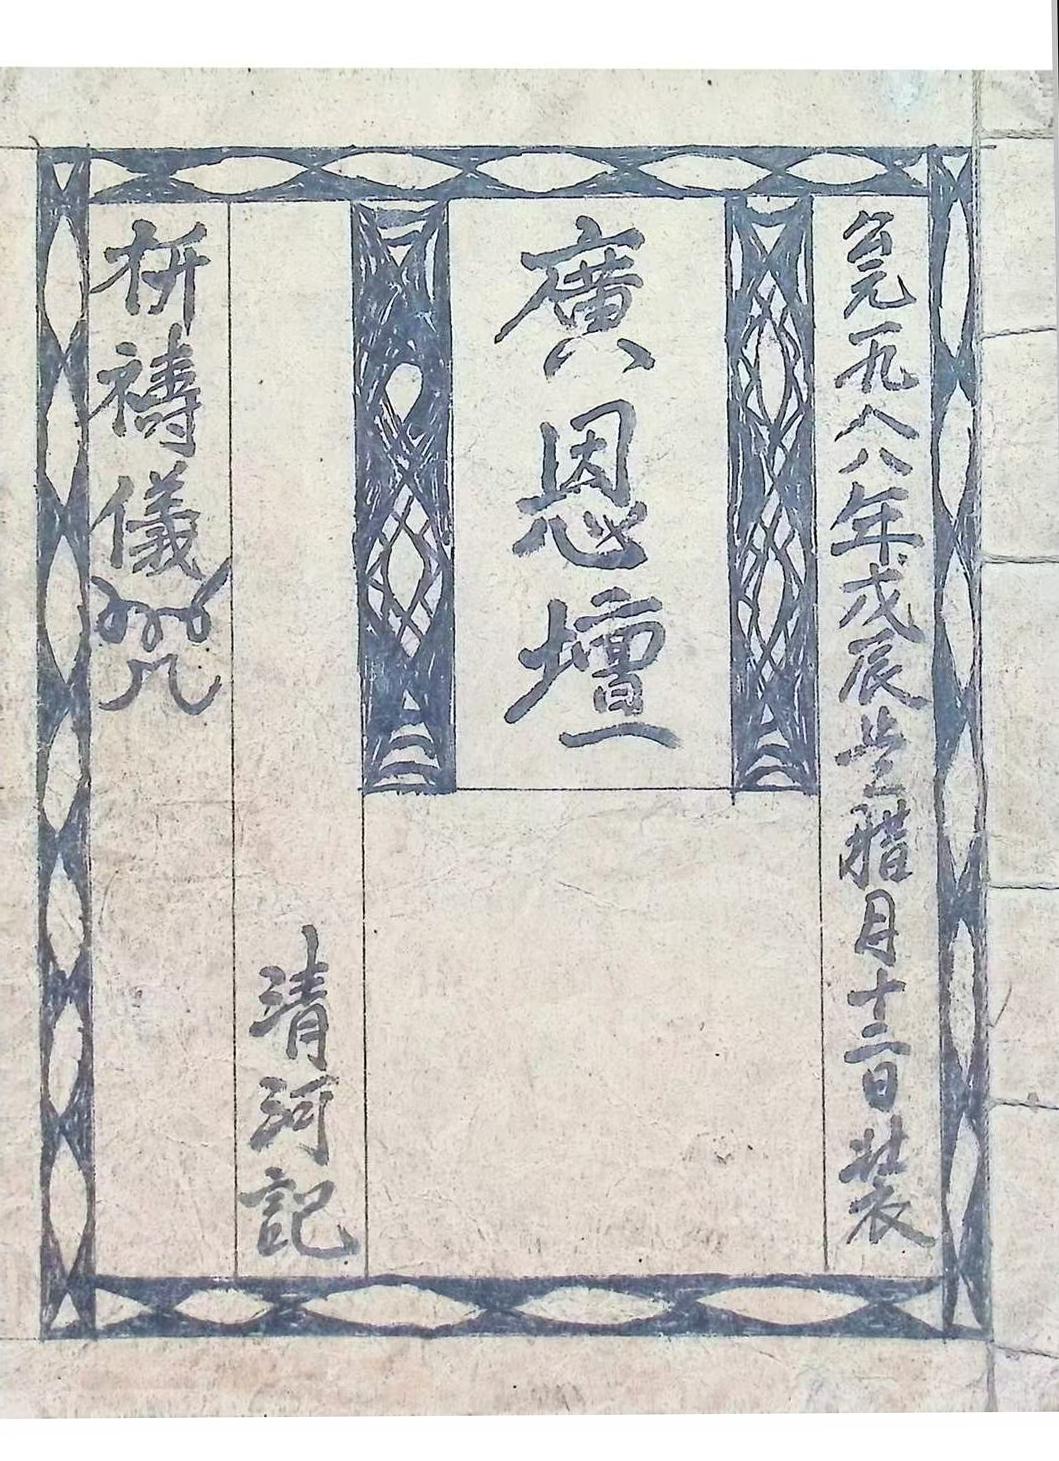 公元一九八八年戊辰腊月十二日裝
廣恩壇
清河記
禱儀